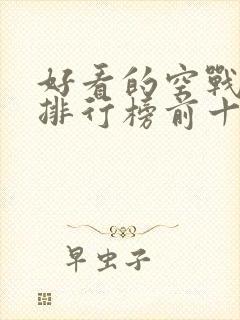 好看的空戰
排行榜前十
早虫子